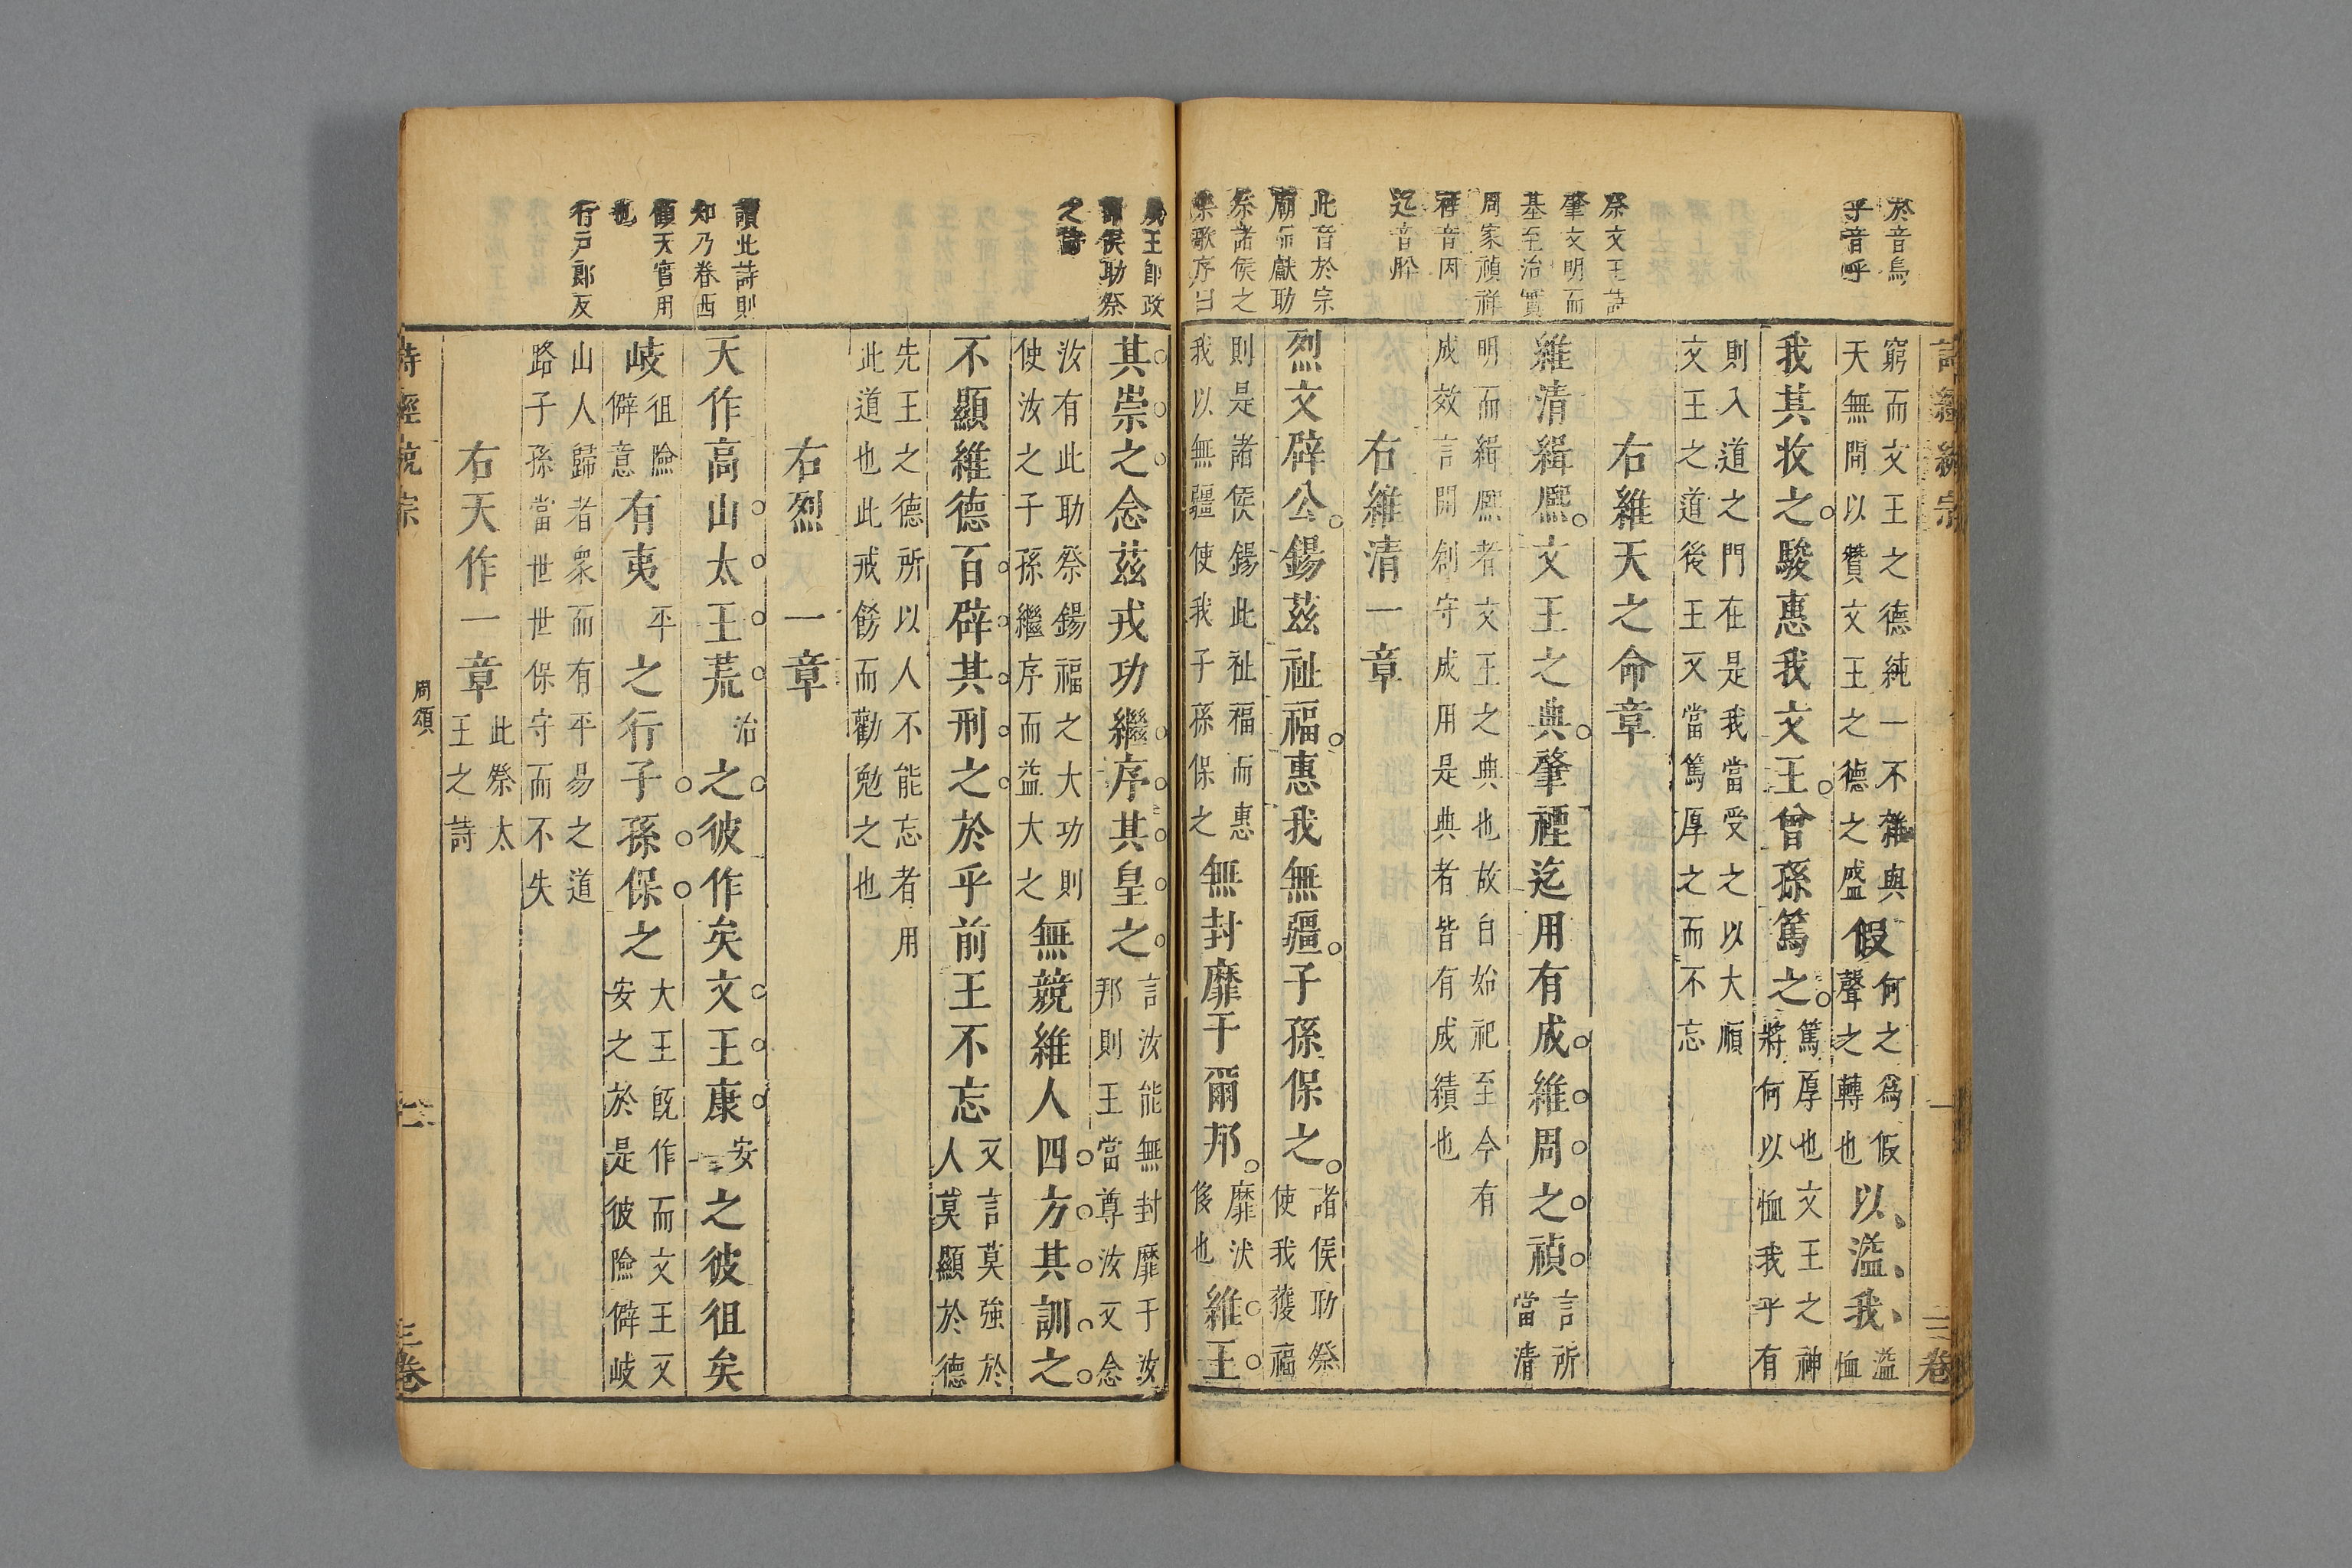 於音烏
乎音呼
祭文王詩
肇文明而
基至治實
周家禎祥
禋音因
迄音肸
此音於宗
廟而獻助
祭諸侯之
樂歌序曰
窮而文王之德純一不雜與何之為假溢
天無間以贊文王之德之盛假聲之轉也以溢我恤
我其收之駿惠我文王曾孫篤之篤厚也文王之神
將何以恤我乎有
則入道之門在是我當受之以大順
文王之道後王又當篤厚之而不忘
右維天之命章
維清緝熙文王之典肇禋迄用有成維周之禎言所
當清
明而緝熙者文王之典也故自始祀至今有
成效言開創守成用是典者皆有成績也
右維清一章
烈文辟公錫茲祉福惠我無疆子孫保之諸侯助祭
使我獲福
則是諸侯錫此祉福而惠
我以無疆使我子孫保之無封靡于爾邦靡汰
侈也維王
成王即政
諸侯助祭
之詩
讀此詩則
知乃眷西
顧天寔用
也
行戸郎反
其崇之念茲戎功繼序其皇之言汝能無封靡于汝
邦則王當尊汝又念
汝有此助祭錫福之大功則
使汝之子孫繼序而益大之無競維人四方其訓之
不顯維德百辟其刑之於乎前王不忘又言莫強於
人莫顯於德
先王之德所以人不能忘者用
此道也此戒飭而勸勉之也
右烈一章
天作高山太王荒治之彼作矣文王康安之彼徂矣
岐徂險
僻意有夷平之行子孫保之大王既作而文王又
安之於是彼險僻岐
山人歸者眾而有平易之道
路子孫當世世保守而不失
右天作一章此祭太
王之詩
周頌